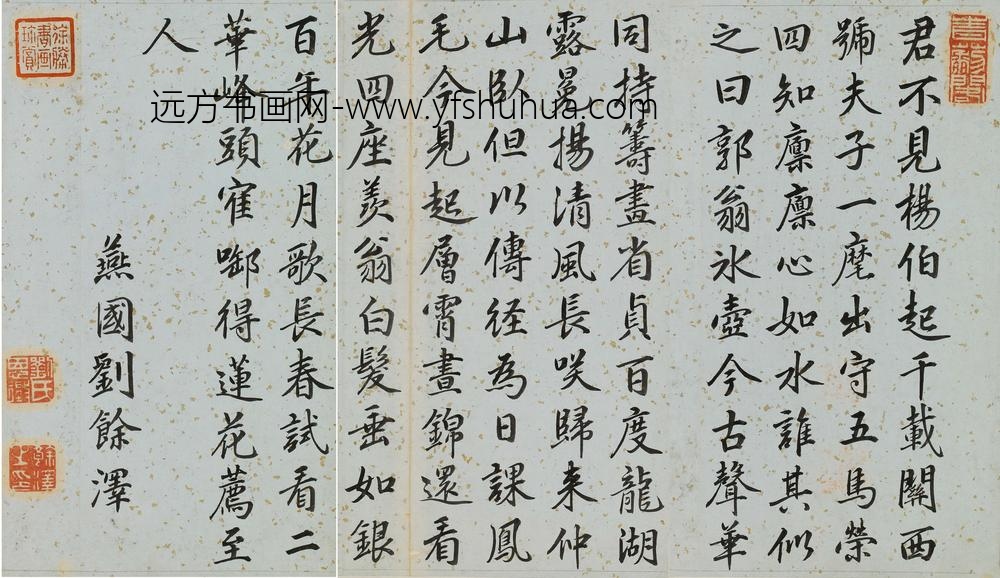 君不見楊伯起千載關西
號夫子一麾出守五馬榮
四知廪廪心如水誰其似
之曰郭翁氷壺今古聲華
同持籌畫省貞百度龍湖
露冕揚清風長咲歸来仲
山臥但以傳経為日課鳳
毛今見起層霄晝錦還看
光四座羨翁白髮垂如銀
百年花月歌長春試看二
華峰頭寉啣得蓮花薦至
人
燕國劉餘澤
远方书画网-www.yfshuhua.com